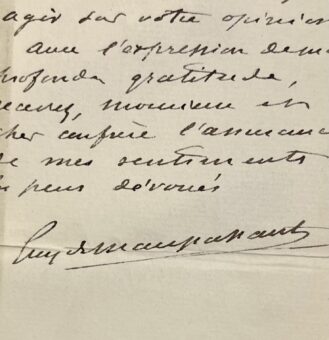 agir sur votre opinion
avec l'expression de ma
profonde gratitude,
recevez, monsieur et
cher confrère l'assurance
de mes sentiments
les plus dévoués
Guy de Maupassant